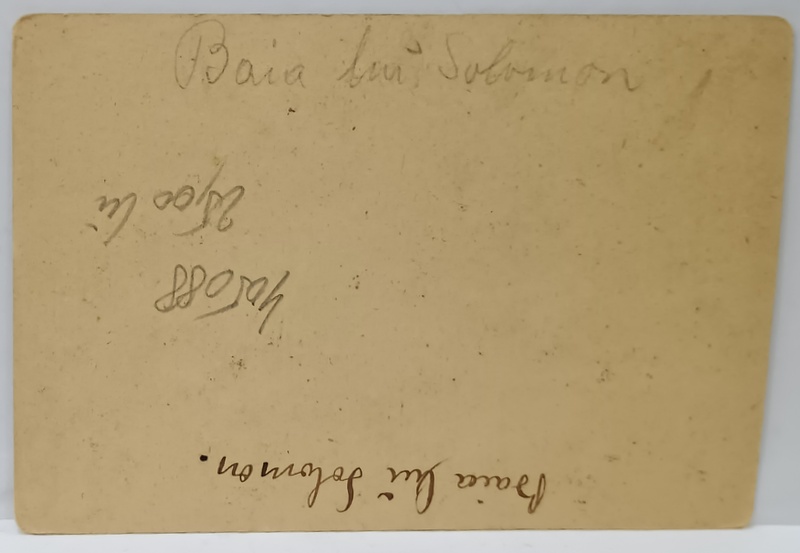 Baia luĭ Solomon
25,00 lei
405088
Baia luĭ Solomon.